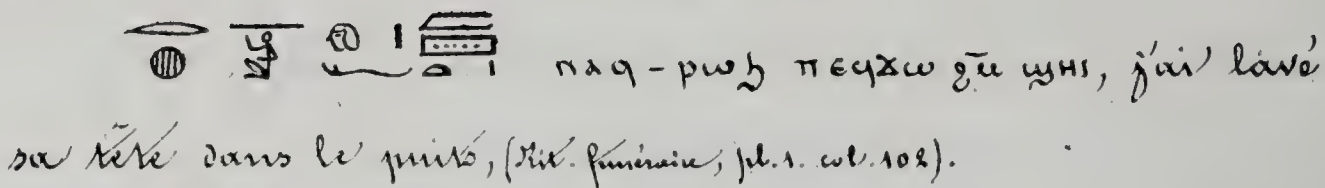 ⲛⲁϥ - ⲣⲱϧ ⲡⲉϥϫⲱ ϩⲙ̄ ϣⲏⲓ, j'ai lavé
sa tête dans le puits, (Rit. funéraire, pl. 1. col. 102).